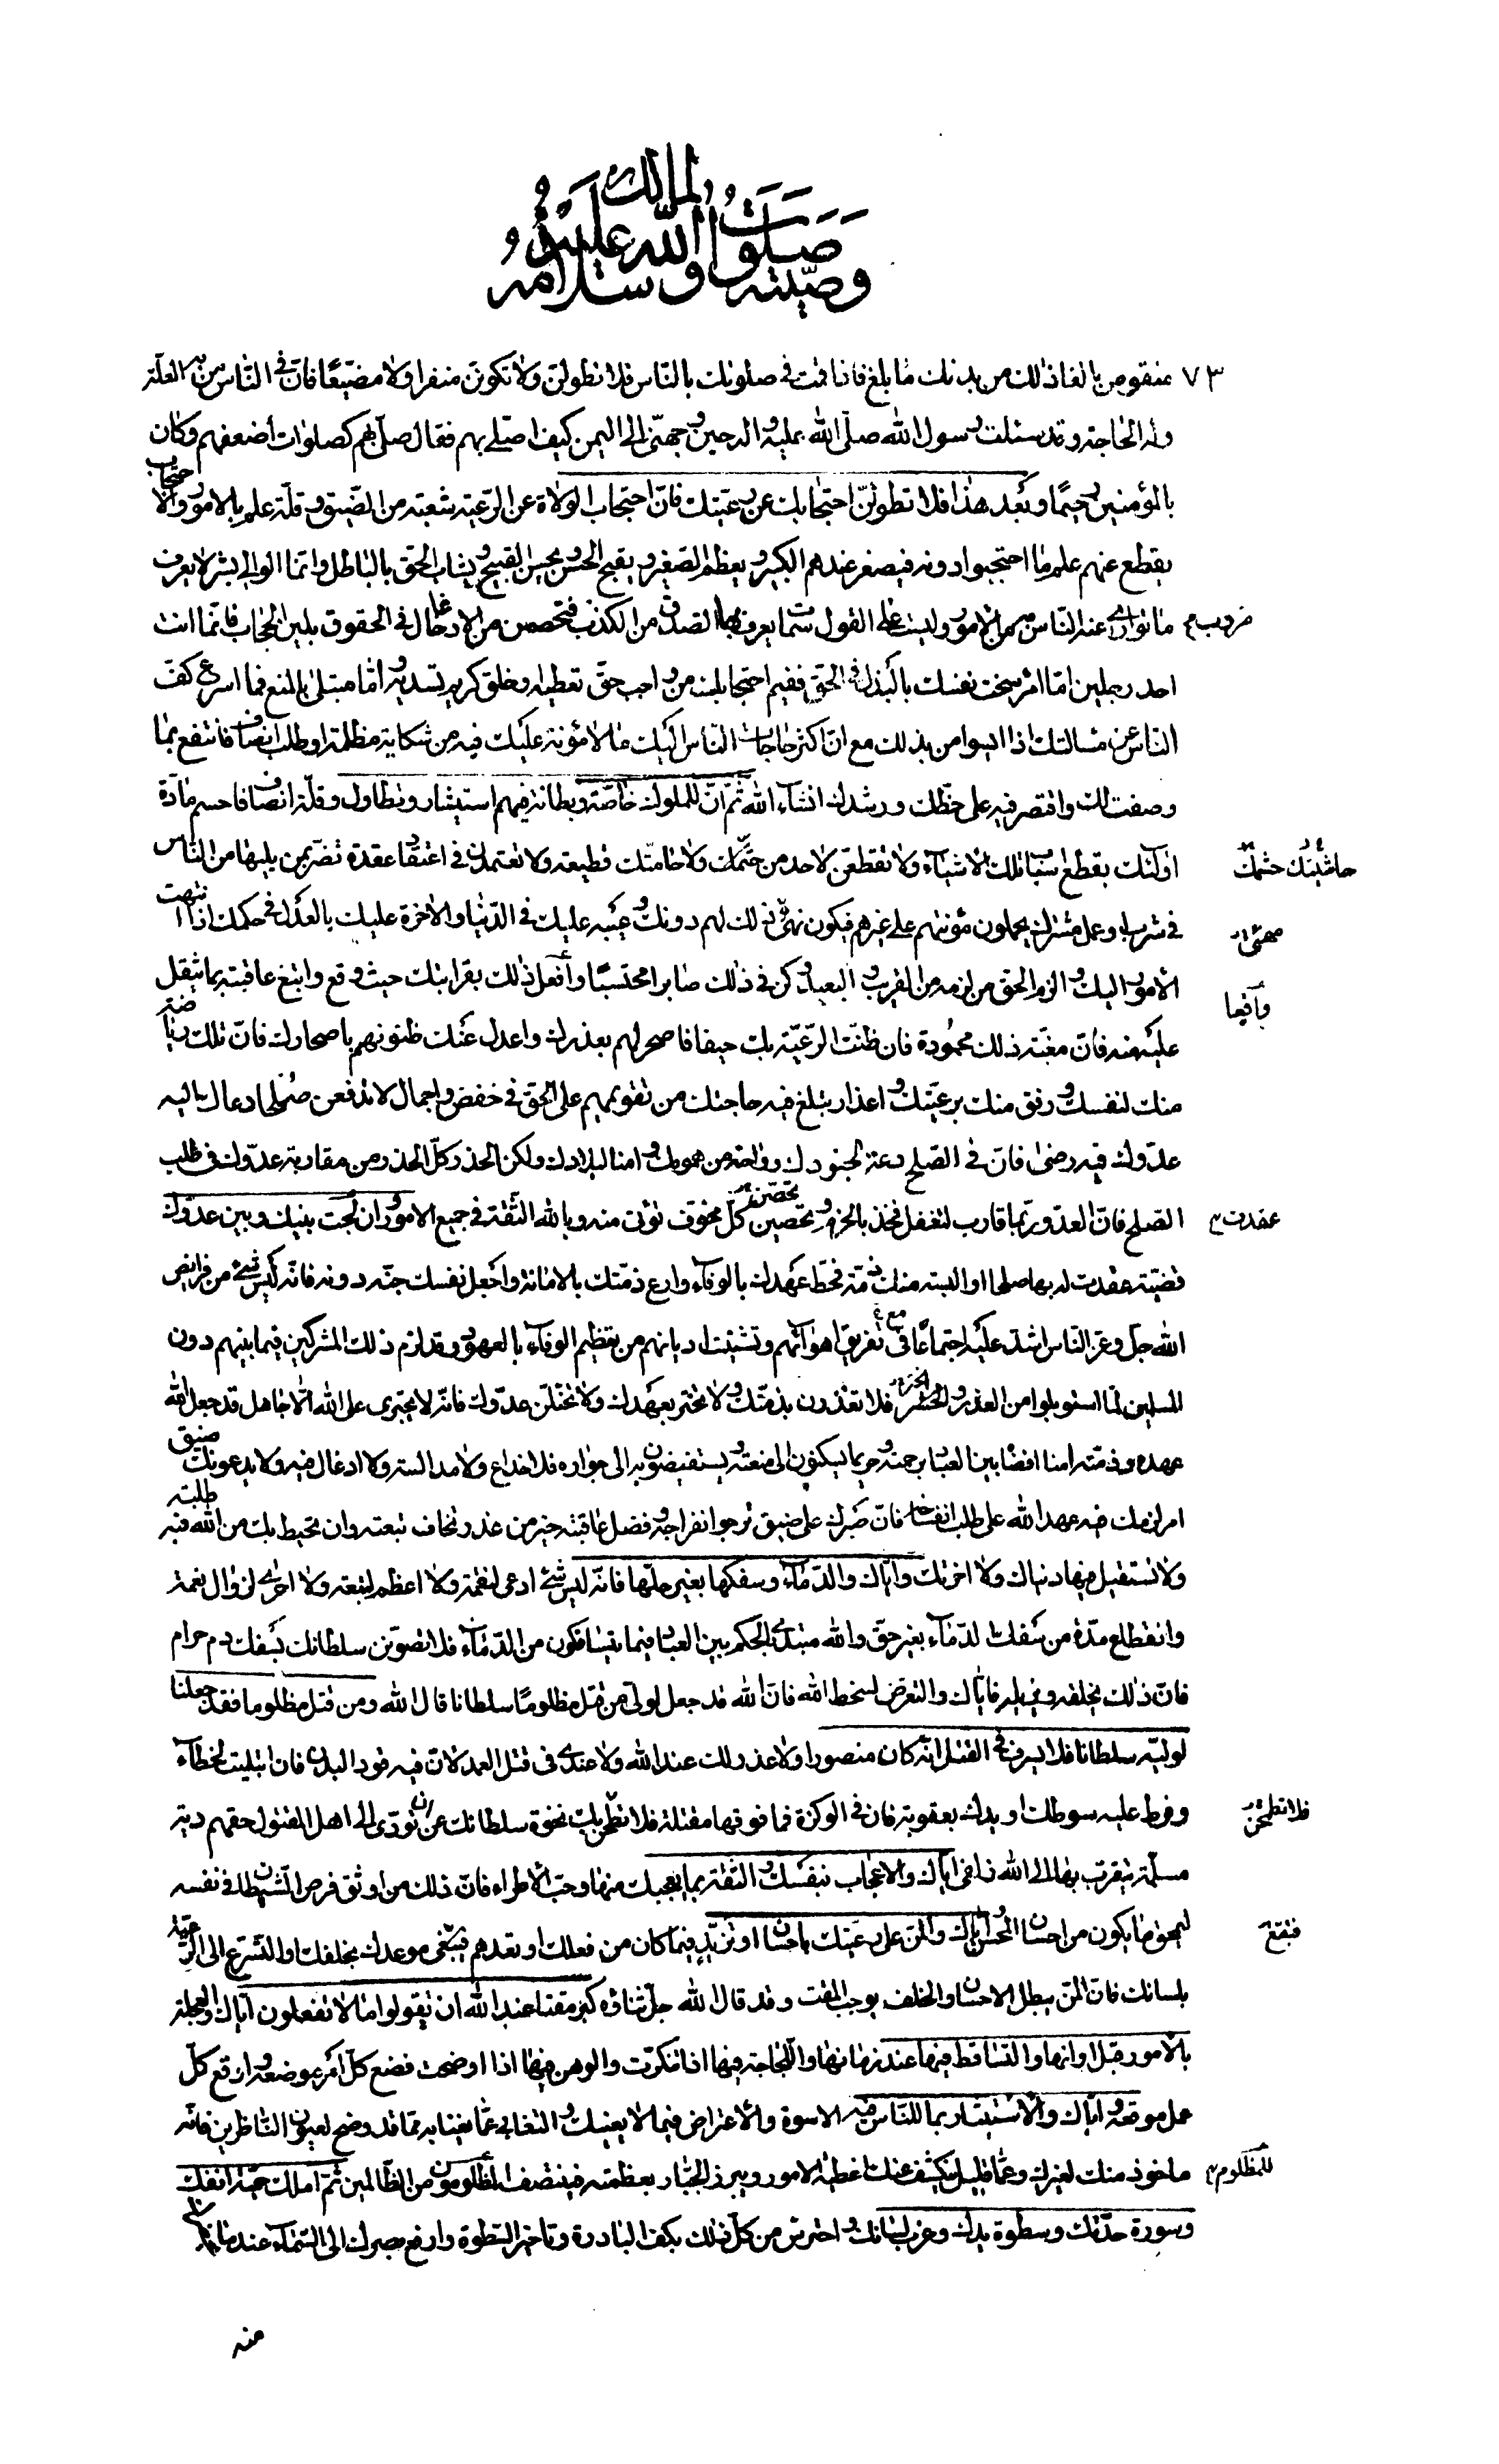 وصيته صلوات الله وسلامه عليه لمالك
٧٣
منقوص بالغا ذلك من بدنك ما بلغ فاذا قمت في صلوتك بالناس فلا تطولن ولا تكونن منفرا ولا مضيعا فان في الناس من به العلة
وله الحاجة وقد سئلت رسول الله صلى الله عليه واله حين وجهني الى اليمن كيف اصلي بهم فقال صل بهم كصلوات اضعفهم وكان
بالمؤمنين رحيما وبعد هذا فلا تطولن احتجابك عن رعيتك فان احتجاب الولاة عن الرعية شعبة من الضيق وقلة علم بالامور والاحتجاب
يقطع عنهم علم ما احتجبوا دونه فيصغر عندهم الكبير ويعظم الصغير ويقبح الحسن ويحسن القبيح ويشاب الحق بالباطل وانما الوالي بشر لا يعرف
ما توارى عنه الناس به من الامور وليست على القول سمات يعرف بها الصدق من الكذب فتحصن من الادغال في الحقوق بلين الحجاب فانما انت
ضروب
احد رجلين اما امرء سخت نفسك بالبذل في الحق ففيم احتجابك من واجب حق تعطيه وخلق كريم تسديه واما مبتلى بالمنع فما اسرع كف
الناس عن مسألتك اذا ايسوا من بذلك مع ان اكثر حاجات الناس اليك ما لا مؤنة عليك فيه من شكاية مظلمة او طلب انصاف فانتفع بما
وصفت لك واقتصر فيه على حظك ورشدك انشاء الله ثم ان للملوك خاصة وبطانة فيهم استيثار وتطاول وقلة انصاف فاحسم مادة
اولئك بقطع اسباب تلك الاشياء ولا تقطعن لاحد من حشمك ولا حامتك قطيعة ولا تعتمدن في اعتقاد عقدة تضر بمن يليها من الناس
حاشيتك حشمك
في شرب او عمل مشترك يحملون مؤنتهم على غيرهم فيكون مهنؤ ذلك لهم دونك وعيبه عليك في الدنيا والاخرة عليك بالعدل في حكمك اذا انتهت
الامور اليك والزم الحق من لزمه من القريب والبعيد وكن في ذلك صابرا محتسبا وافعل ذلك بقرابتك حيث وقع وابتغ عاقبته بما يثقل
واقعا
عليك منه فان مغبة ذلك محمودة فان ظنت الرعية بك حيفا فاصحر لهم بعذرك واعدل عنك ظنونهم باصحارك فان تلك رياضة
منك لنفسك ورفق منك برعيتك واعذار تبلغ فيه حاجتك من تقويمهم على الحق في خفض واجمال لا تدفعن صلحا دعاك اليه
عدوك فيه رضى فان في الصلح دعة لجنودك وراحة من همومك وامنا لبلادك ولكن الحذر كل الحذر من مقاربة عدوك في طلب
الصلح فان العدو ربما قارب ليتغفل فخذ بالحزم وتحصين كل مخوف تؤتى منه وبالله الثقة في جميع الامور وان لجت بينك وبين عدوك
عقدت
قضية عقدت له بها صلحا او البسته منك ذمة فحط عهدك بالوفاء وارع ذمتك بالامانة واجعل نفسك جنة دونه فانه ليس شئ من فرائض
الله جل وعز الناس اشد عليه اجتماعا في تفريق اهوائهم وتشتيت اديانهم من تعظيم الوفاء بالعهود وقد لزم ذلك المشركين فيما بينهم دون
المسلمين لما استوبلوا من الغدر والختر فلا تغدرن بذمتك ولا تختر بعهدك ولا تختلن عدوك فانه لا يجتري على الله الا جاهل قد جعل الله
عهده وذمته امنا افضاه بين العباد برحمته وحريما يسكنون الى منعته ويستفيضون به الى جواره فلا خداع ولا مدالسة ولا ادغال فيه ولا يدعونك ضيق
امر لزمك فيه عهد الله على طلب انفساخه فان صبرك على ضيق ترجو انفراجه وفضل عاقبته خير من غدر تخاف تبعته وان تحيط بك من الله فيه طلبة
ولا تستقبل فيها دنياك ولا اخرتك واياك والدماء وسفكها بغير حلها فانه ليس شئ ادعى لنقمة ولا اعظم لتبعة ولا احرى لزوال نعمة
وانقطاع مدة من سفك الدماء بغير حق والله مبتدئ بالحكم بين العباد فيما يتسافكون من الدماء فلا تصونن سلطانك بسفك دم حرام
فان ذلك يخلقه ويبليه فاياك والتعرض لسخط الله فان الله قد جعل لولي من قتل مظلوما سلطانا قال الله ومن قتل مظلوما فقد جعلنا
لوليه سلطانا فلا يسرف في القتل انه كان منصورا ولا عذر لك عند الله ولا عندي في قتل العمد لان فيه قود البدن فان ابتليت بخطاء
وفرط عليه سوطك او يدك بعقوبة فان في الوكزة فما فوقها مقتلة فلا تطمحن بك نخوة سلطانك عن ان تؤدى الى اهل المقتول حقهم دية
فلا تطمحن
مسلمة يتقرب بها الى الله زلفى اياك والاعجاب بنفسك والثقة بما يعجبك منها وحب الاطراء فان ذلك من اوثق فرص الشيطان في نفسه
ليمحق ما يكون من احسان المحسن اياك والمن على رعيتك باحسان او تزيد فيما كان من فعلك او تعدهم فتتبع موعدك بخلفك او التسرع الى الرعية
فتتبع
بلسانك فان المن يبطل الاحسان والخلف يوجب المقت وقد قال الله جل ثناؤه كبر مقتا عند الله ان تقولوا ما لا تفعلون اياك والعجلة
بالامور قبل اوانها والتساقط فيها عند زمانها واللجاجة فيها اذا تنكرت والوهن فيها اذا اوضحت فضع كل امر موضعه واوقع كل
عمل موقعه واياك والاستيثار بما للناس فيه الاسوة والاعتراض فيما لا يعنيك والتغابي عما يعنى به مما قد وضح لعيون الناظرين فانه
ماخوذ منك لغيرك وعما قليل تنكشف عنك اغطية الامور ويبرز الجبار بعظمته فينتصف المظلومون من الظالمين ثم املك حمية انفك
للمظلوم
وسورة حدتك وسطوة يدك وغرب لسانك واحترس من كل ذلك بكف البادرة وتاخير السطوة وارفع بصرك الى السماء عند ما
منه